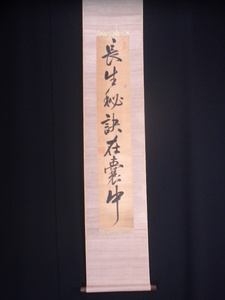 長生秘訣在嚢中